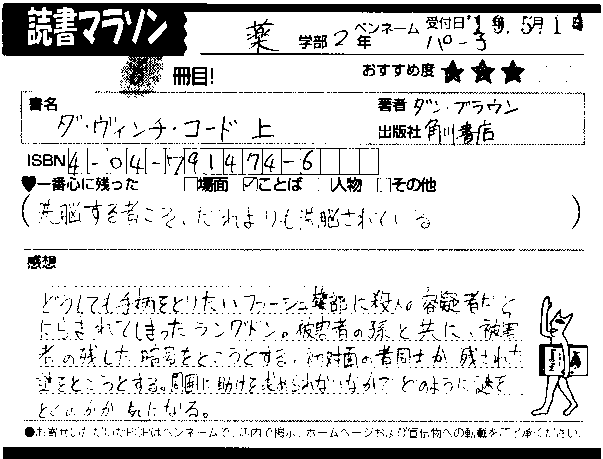 読書マラソン
薬 学部 2 年
ペンネーム パーチ
受付日
冊目!
おすすめ度 ★★★
書名 ダ・ヴィンチ・コード 上
著者 ダン・ブラウン
出版社 角川書店
ISBN 4-04-791474-6
♥一番心に残った □場面 ☑ことば □人物 □その他
(洗脳する者こそ、だれよりも洗脳されている)
感想
どうしても手柄をとりたいファーシュ警部に殺人。容疑者だと
にらまれてしまったラングドン。被害者の孫と共に、被害
者の残した暗号をとこうとする。初対面の者同士が、残された
謎をとこうとする。周囲に助けを求められないなかで どのように謎を
とくのかが 気になる。
●お寄せいただいたPOPはペンネームで、店内で掲示、ホームページおよび宣伝物への転載をご了承ください。